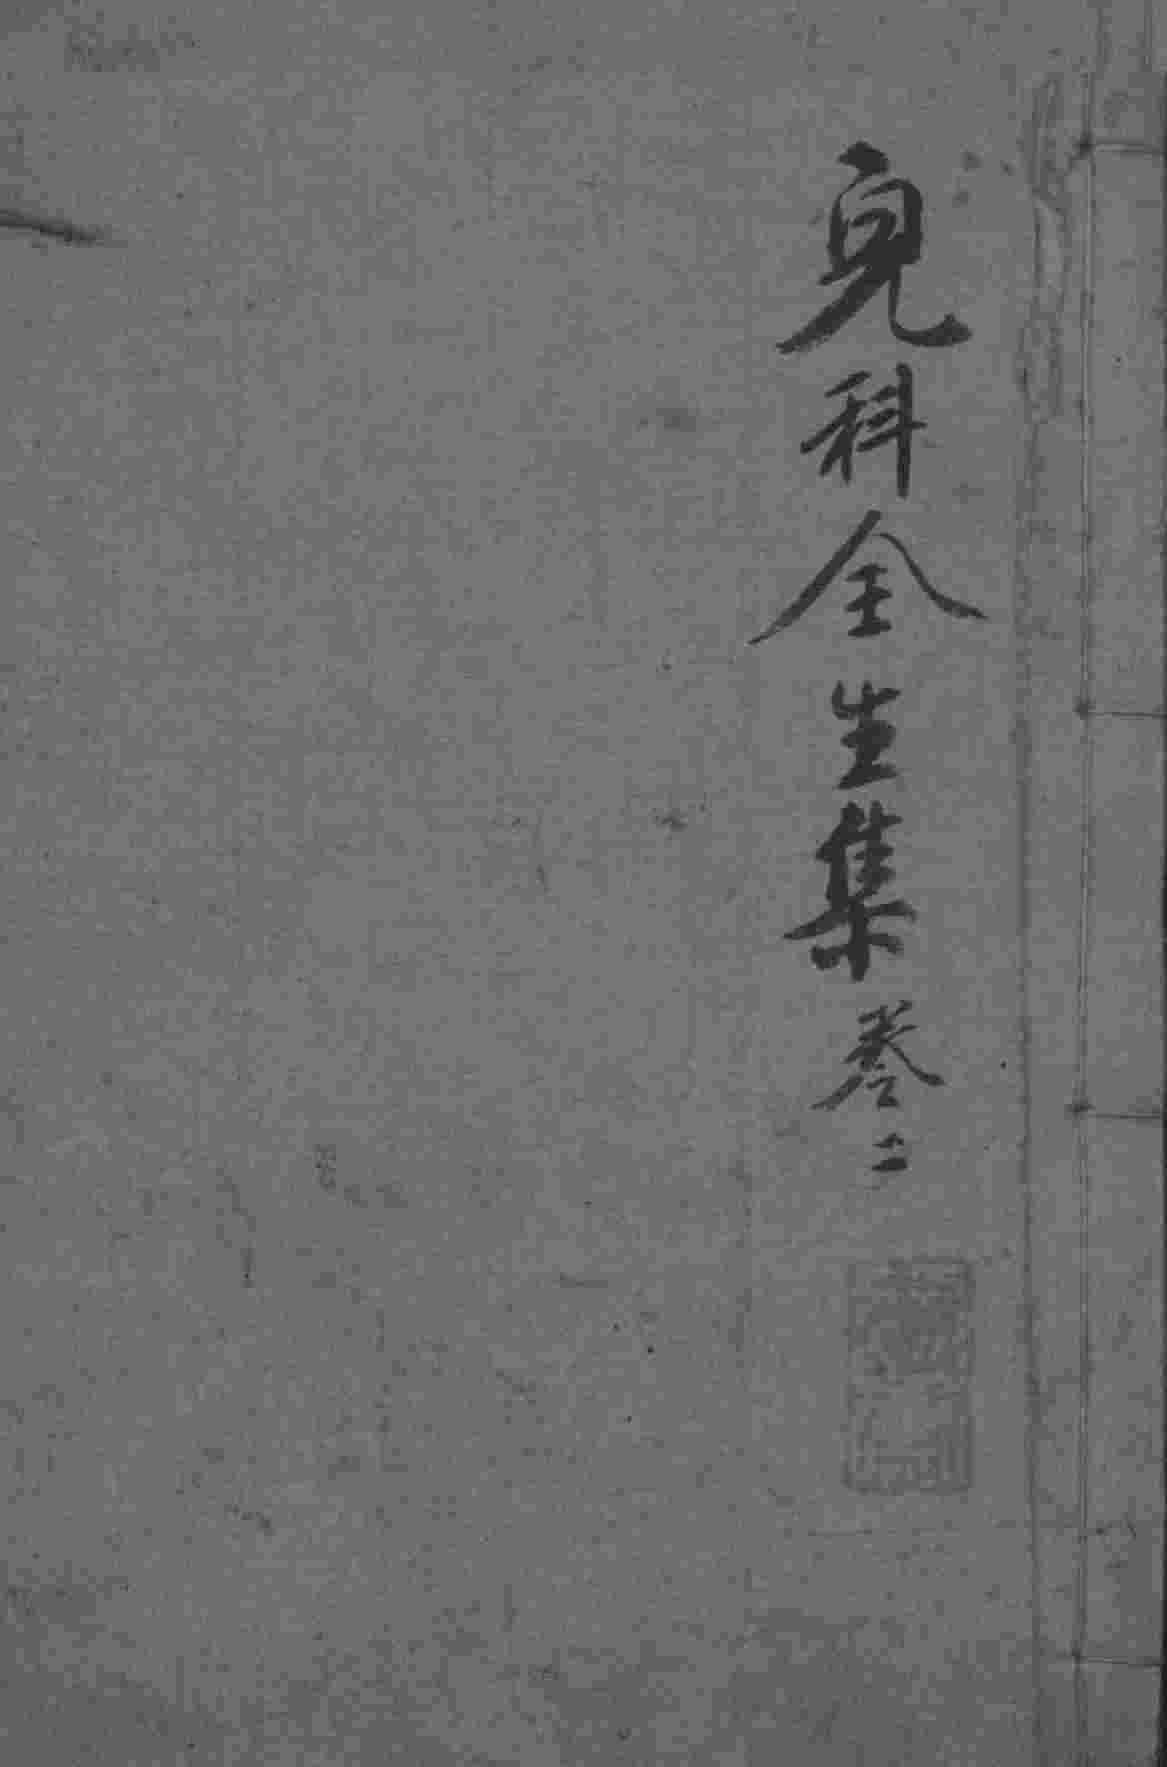 兒科全生集卷二